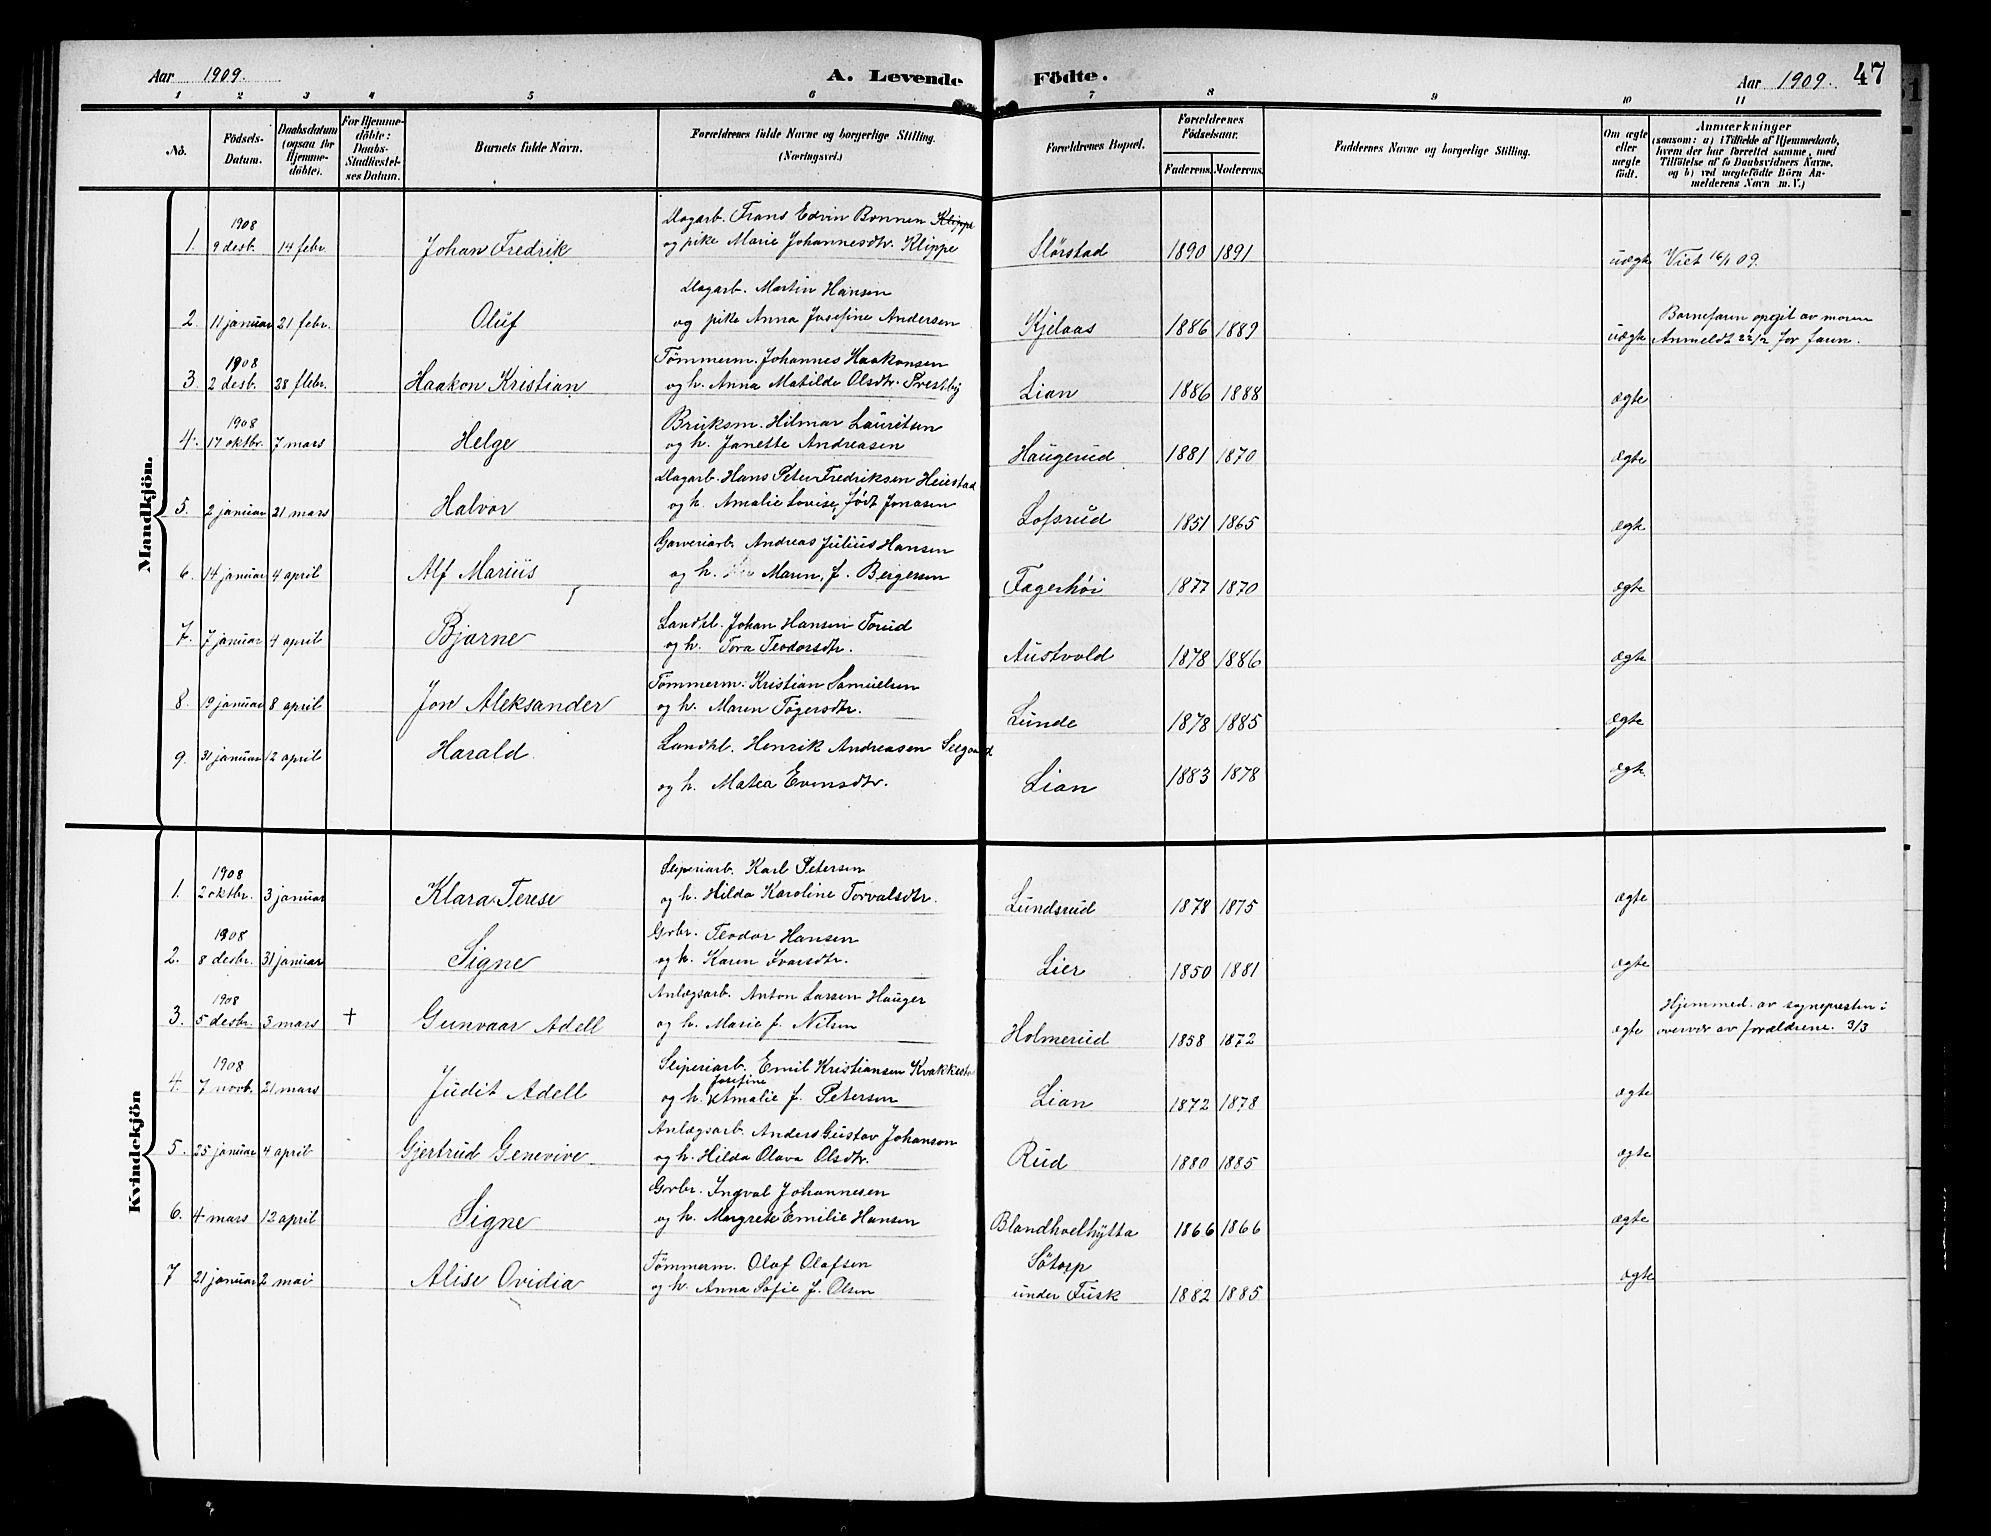 Aar 1909. A. Levende Födte. Aar 1909. 47
1 2 3 4 5 6 7 8 9 10 11
No. Födsels-Datum. Daabsdatum (ogsaa for Hjemme-döbte). For Hjemme-döbte: Daabs-Stadfæstel-ses Datum. Barnets fulde Navn. Forældrenes fulde Navne og borgerlige Stilling. (Næringsvei.) Forældrenes Bopæl. Forældrenes Födselsaar. Faderens. Moderens. Faddernes Navne og borgerlige Stilling. Om ægte eller uægte födt. Anmærkninger (saasom: a) i Tilfælde af Hjemmedaab, hvem der har forrettet samme, med Tilföielse af to Daabsvidners Navne, og b) ved uægtefödte Börn An-melderens Navn m. V.)
Mandkjön.
1. 1908 9 desb. 14 febr. Johan Fredrik Dagarb. Frans Edvin Bonnen Klippe
og pike Marie Johannesdtr. Klippe Slørstad 1890 1891 uægte Viet 16/1 09.
2. 11 januar 21 febr. Oluf Dagarb. Martin Hansen
og pike Anna Josefine Andersen Kjelaas 1886 1889 uægte Barnefaren opgit av moren
Anmeldt 22/2 for faren.
3. 1908 2 desb. 28 febr. Haakon Kristian Tømmerm. Johannes Haakonsen
og h. Anna Matilde Olsdtr. Prestby Lian 1886 1888 ægte
4. 1908 17 oktbr. 7 mars Helge Bruksm. Hilmar Lauritsen
og h. Janette Andreasen Haugerud 1881 1870 ægte
5. 2 januar 21 mars Halvor Dagarb. Hans Peter Fredriksen Heiestad
og h. Amalie Lovise, født Jonasen Lofsrud 1851 1865 ægte
6. 14 januar 4 april Alf Marius Garveriarb. Andreas Julius Hansen
og h. Maren, f. Bergersen Fagerhøi 1877 1870 ægte
7. 7 januar 4 april Bjarne Landhl. Johan Hansen Torud
og h. Tora Teodorsdtr. Austvold 1878 1886 ægte
8. 19 januar 8 april Jon Aleksander Tømmerm. Kristian Samuelsen
og h. Maren Tøgersdtr. Lunde 1878 1885 ægte
9. 31 januar 12 april Harald Landhl. Henrik Andreasen Seegaard
og h. Matea Evensdtr. Lian 1883 1878 ægte
Kvindekjön
1. 1908 2 oktbr. 3 januar Klara Terese Sliperiarb. Karl Petersen
og h. Hilda Karoline Torvalsdtr. Lundsrud 1878 1875 ægte
2. 1908 8 desbr. 31 januar Signe Grbr. Teodor Hansen
og h. Karen Ivarsdtr. Lier 1850 1881 ægte
3. 1908 5 desbr. 3 mars + Gunvaar Adell Anlægsarb. Anton Larsen Hauger
og h. Marie f. Nilsen Holmerud 1858 1872 ægte Hjemmed. av sognepresten i
overvær av forældrene. 3/3
4. 1908 7 novb. 21 mars Judit Adell Sliperiarb. Emil Kristiansen Kvakkestad
og h. Josefine Amalie f. Petersen Lian 1872 1878 ægte
5. 25 januar 4 april Gjertrud Genevive Anlægsarb. Anders Gustav Johanson
og h. Hilda Olava Olsdtr. Rud 1880 1885 ægte
6. 4 mars 12 april Signe Grbr. Ingval Johannesen
og h. Margrete Emilie Hansen Blandhvelhytta 1866 1866 ægte
7 21 januar 2 mai Alise Ovidia Tømmerm. Olaf Olafsen
og h. Anna Sofie f. Olsen Søtorp
under Fusk 1882 1885 ægte